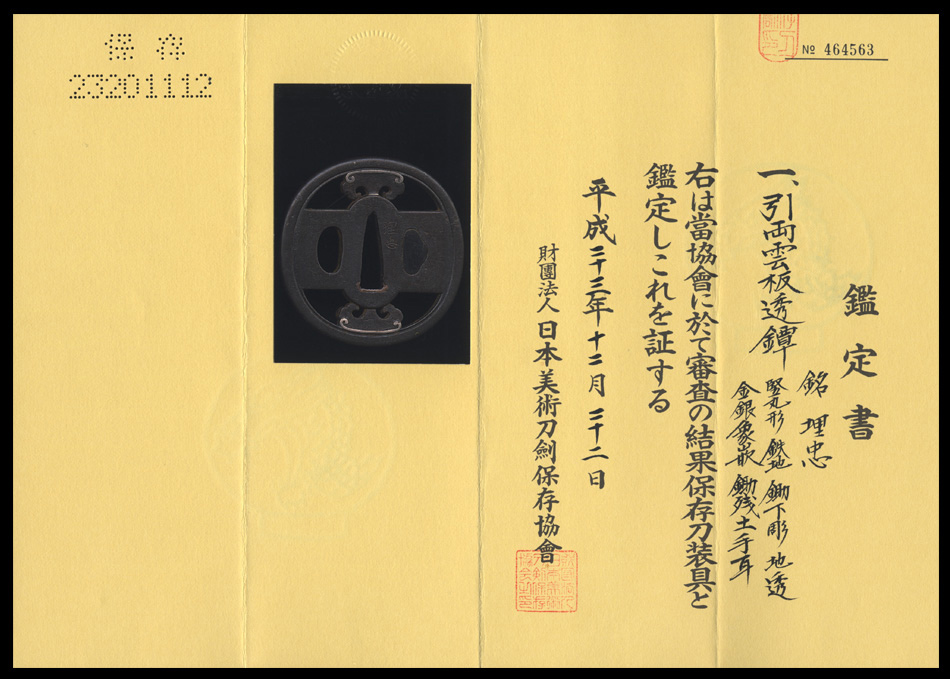 № 464563
鑑定書
一、引両雲板透鐔
銘 埋忠
竪丸形 鉄地 鋤下彫 地透
金銀象嵌 鋤残土手耳
右は當協會に於て審査の結果保存刀装具と
鑑定しこれを証する
平成二十三年十二月二十二日
財團法人 日本美術刀劍保存協會
保存
23201112